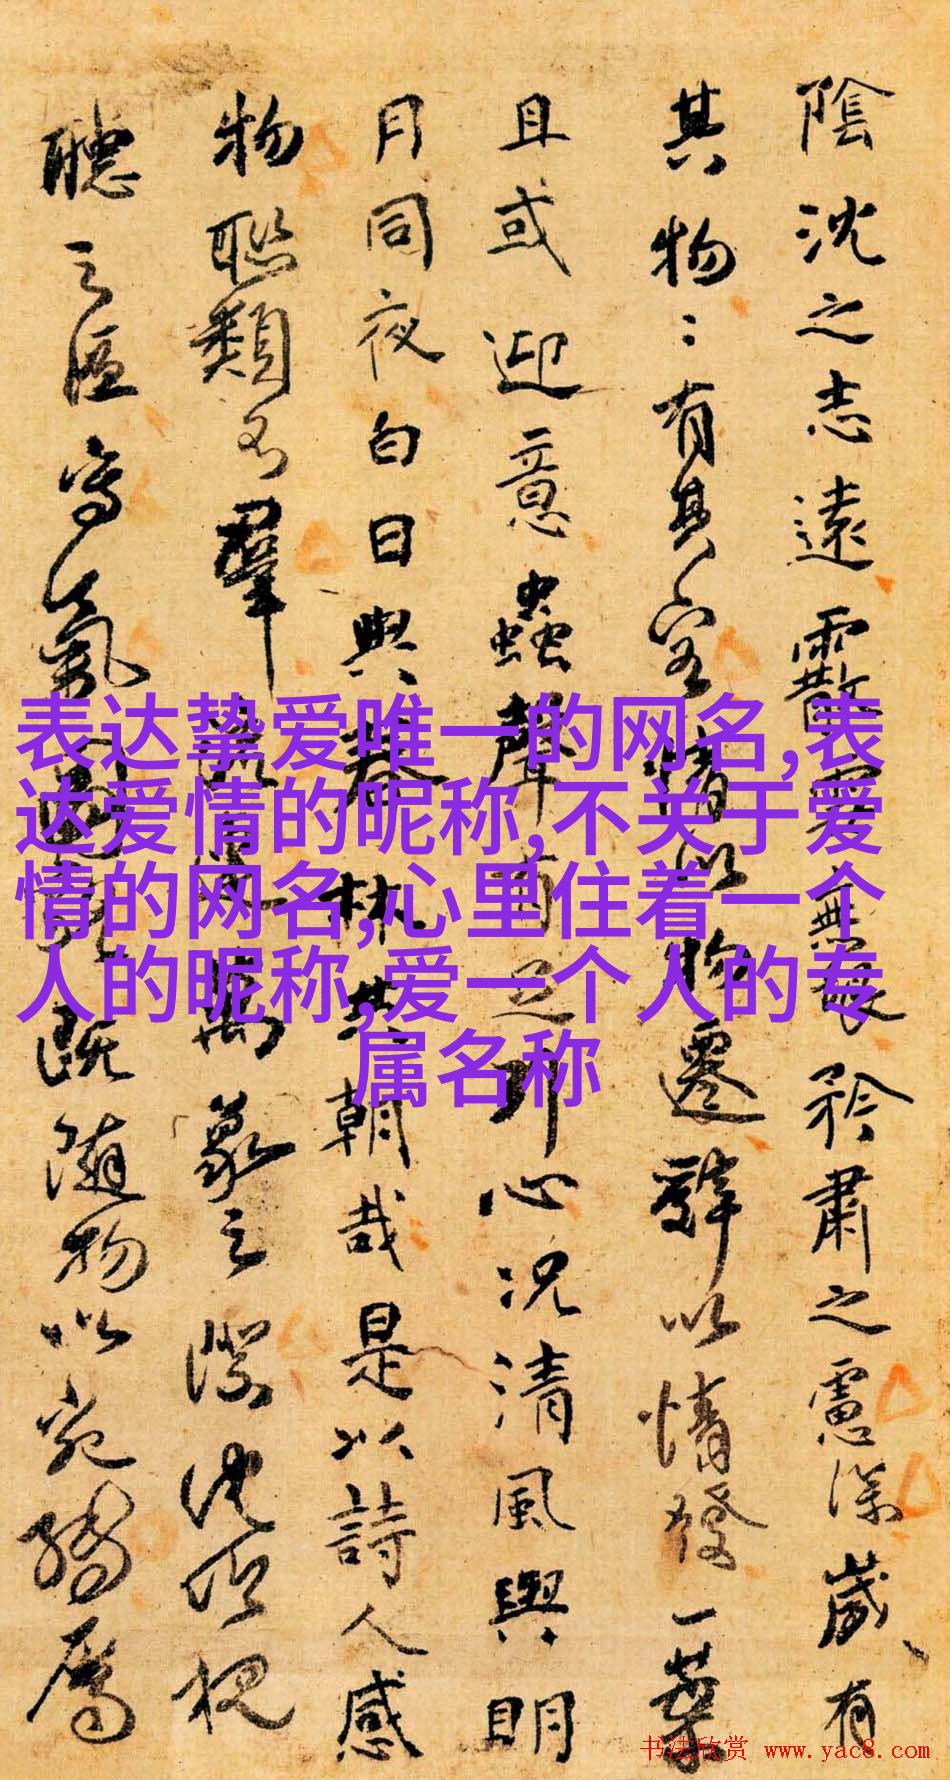 陰沈之志遠霰雪無垠矜肅之慮深歲有
其物〻有其容情以物遷辭以情發一葉
且或迎意蟲聲有足引心況清風與明
月同夜白日與春林共朝哉是以詩人感
物聯類不 萬象之際沈吟視
聽之區寫氣圖貌既隨物以宛轉屬
表达挚爱唯一的网名,表
达爱情的昵称,不关于爱
情的网名,心里住着一个
人的昵称,爱一个人的专
属名称
书法欣赏 www.yac8.com